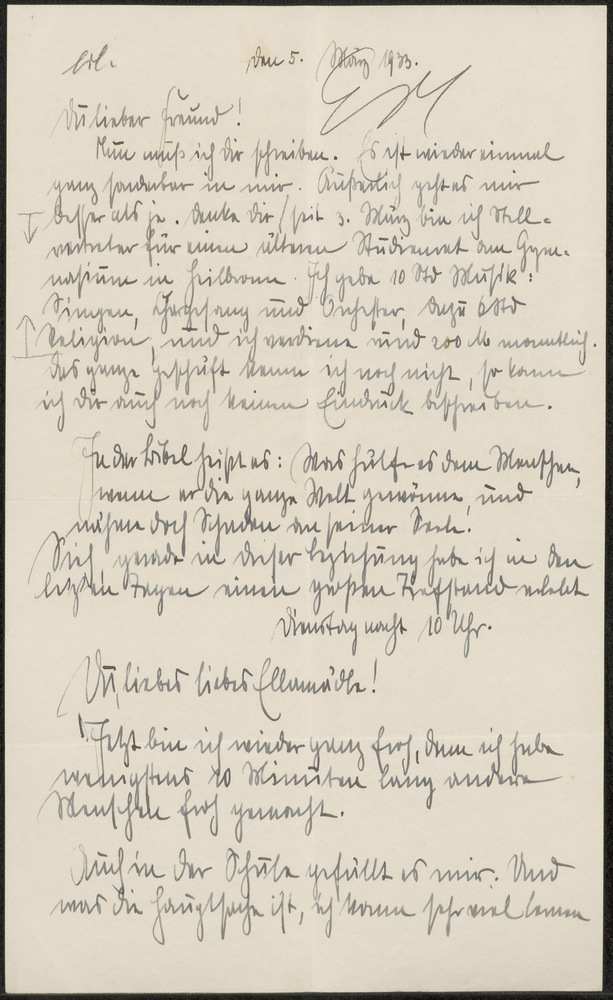 den 5. März 1933.
Du lieber Freund!
Nun muß ich Dir schreiben. Es ist wieder einmal
ganz sonderbar in mir. Äußerlich geht es mir
besser als je. Denke Dir, seit 3. März bin ich Stell-
vertreter für einen älteren Studienrat am Gym-
nasium in Heilbronn. Ich gebe 10 Std Musik:
Singen, Chorgesang und Orchester, dazu 6 Std
Religion, und ich verdiene rund 200 M monatlich.
Das ganze Geschäft kenne ich noch nicht, so kann
ich Dir auch noch keinen Eindruck beschreiben.
In der Bibel heißt es: Was hülfe es dem Menschen,
wenn er die ganze Welt gewönne, und
nähme doch Schaden an seiner Seele.
Sieh, gerade in dieser Beziehung habe ich in den
letzten Tagen einen großen Tiefstand erlebt
Dienstag nacht 10 Uhr.
Du, liebes liebes Ellamädle!
Jetzt bin ich wieder ganz froh, denn ich habe
wenigstens 10 Minuten lang andere
Menschen froh gemacht.
Auch in der Schule gefällt es mir. Und
was die Hauptsache ist, ich kann sehr viel lernen